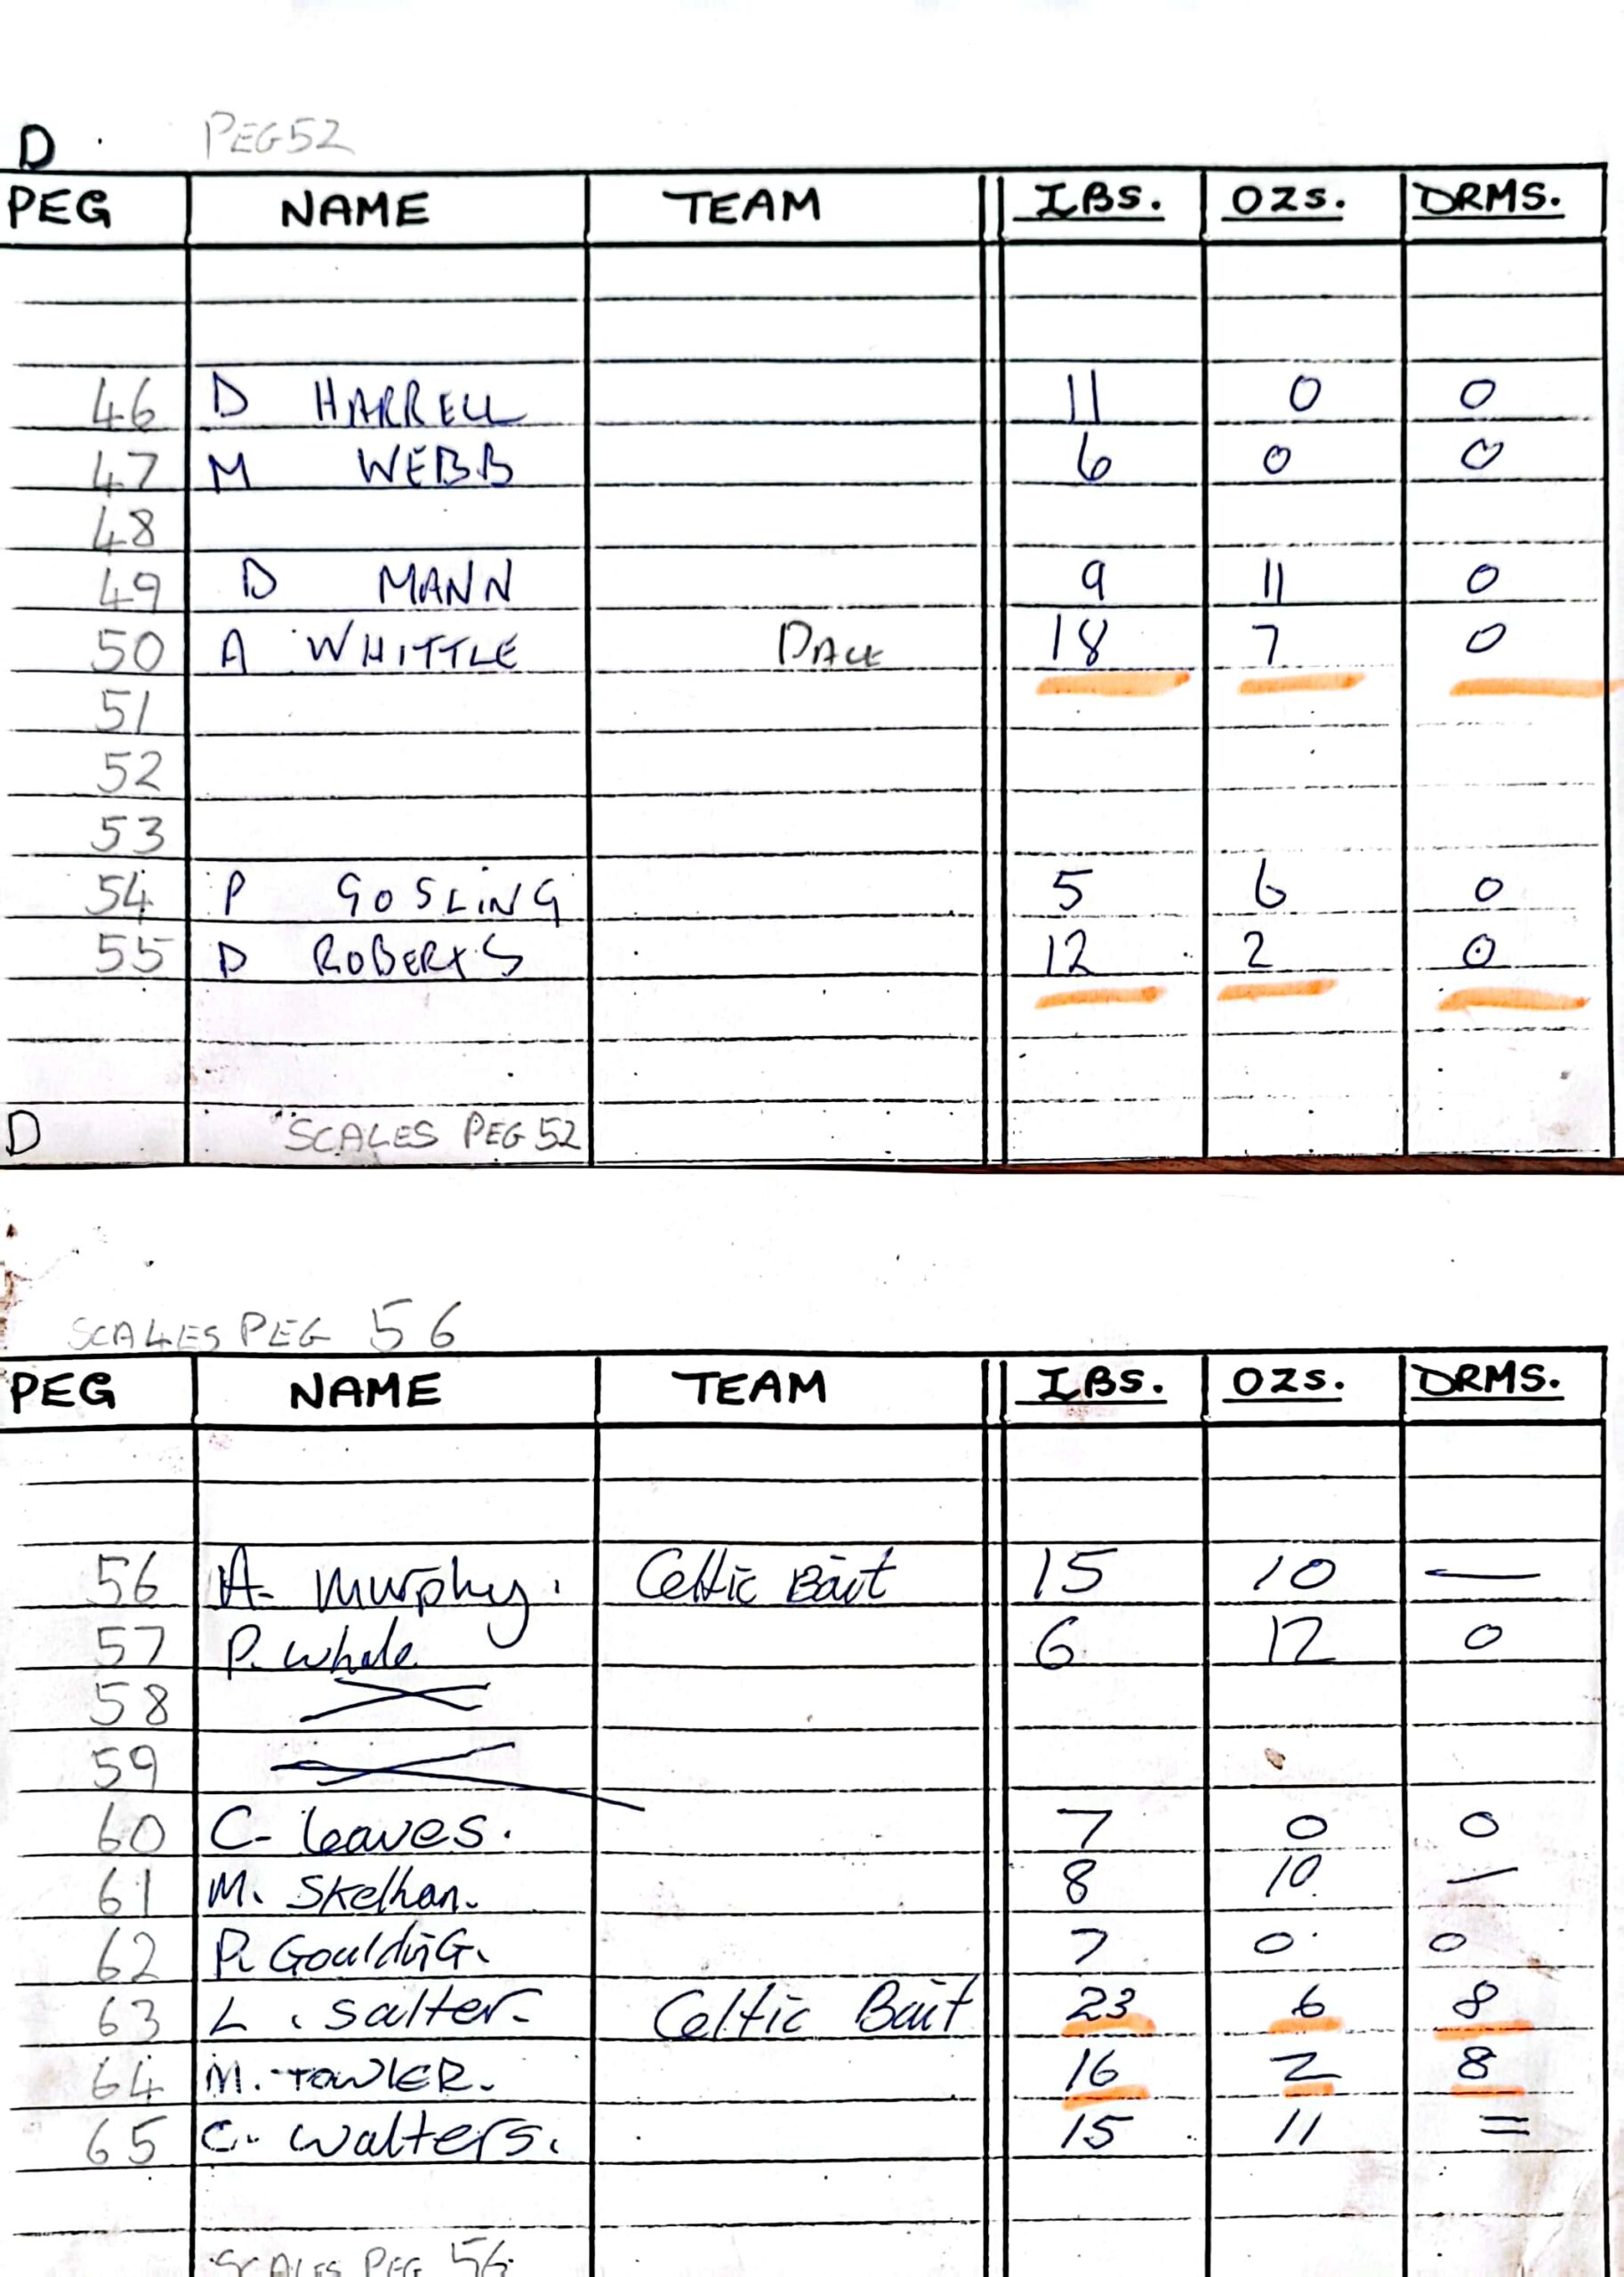 D PEG 52
PEG NAME TEAM IBS. OZS. DRMS.
46 D HARRELL 11 0 0
47 M WEBB 6 0 0
48
49 D MANN 9 11 0
50 A WHITTLE 18 7 0
51
52
53
54 P GOSLING 5 6 0
55 D ROBERTS 12 2 0
D SCALES PEG 52
SCALES PEG 56
PEG NAME TEAM IBS. OZS. DRMS.
56 A. Murphy. Celtic Bait 15 10 —
57 P. Whale 6 12 0
58
59
60 C. 7 0 0
61 M. Skelhan. 8 10 —
62 P. GouldinG. 7 0 0
63 L. Salter- Celtic Bait 23 6 8
64 M. TOWLER. 16 2 8
65 C. Walters. 15 11 =
SCALES PEG 56